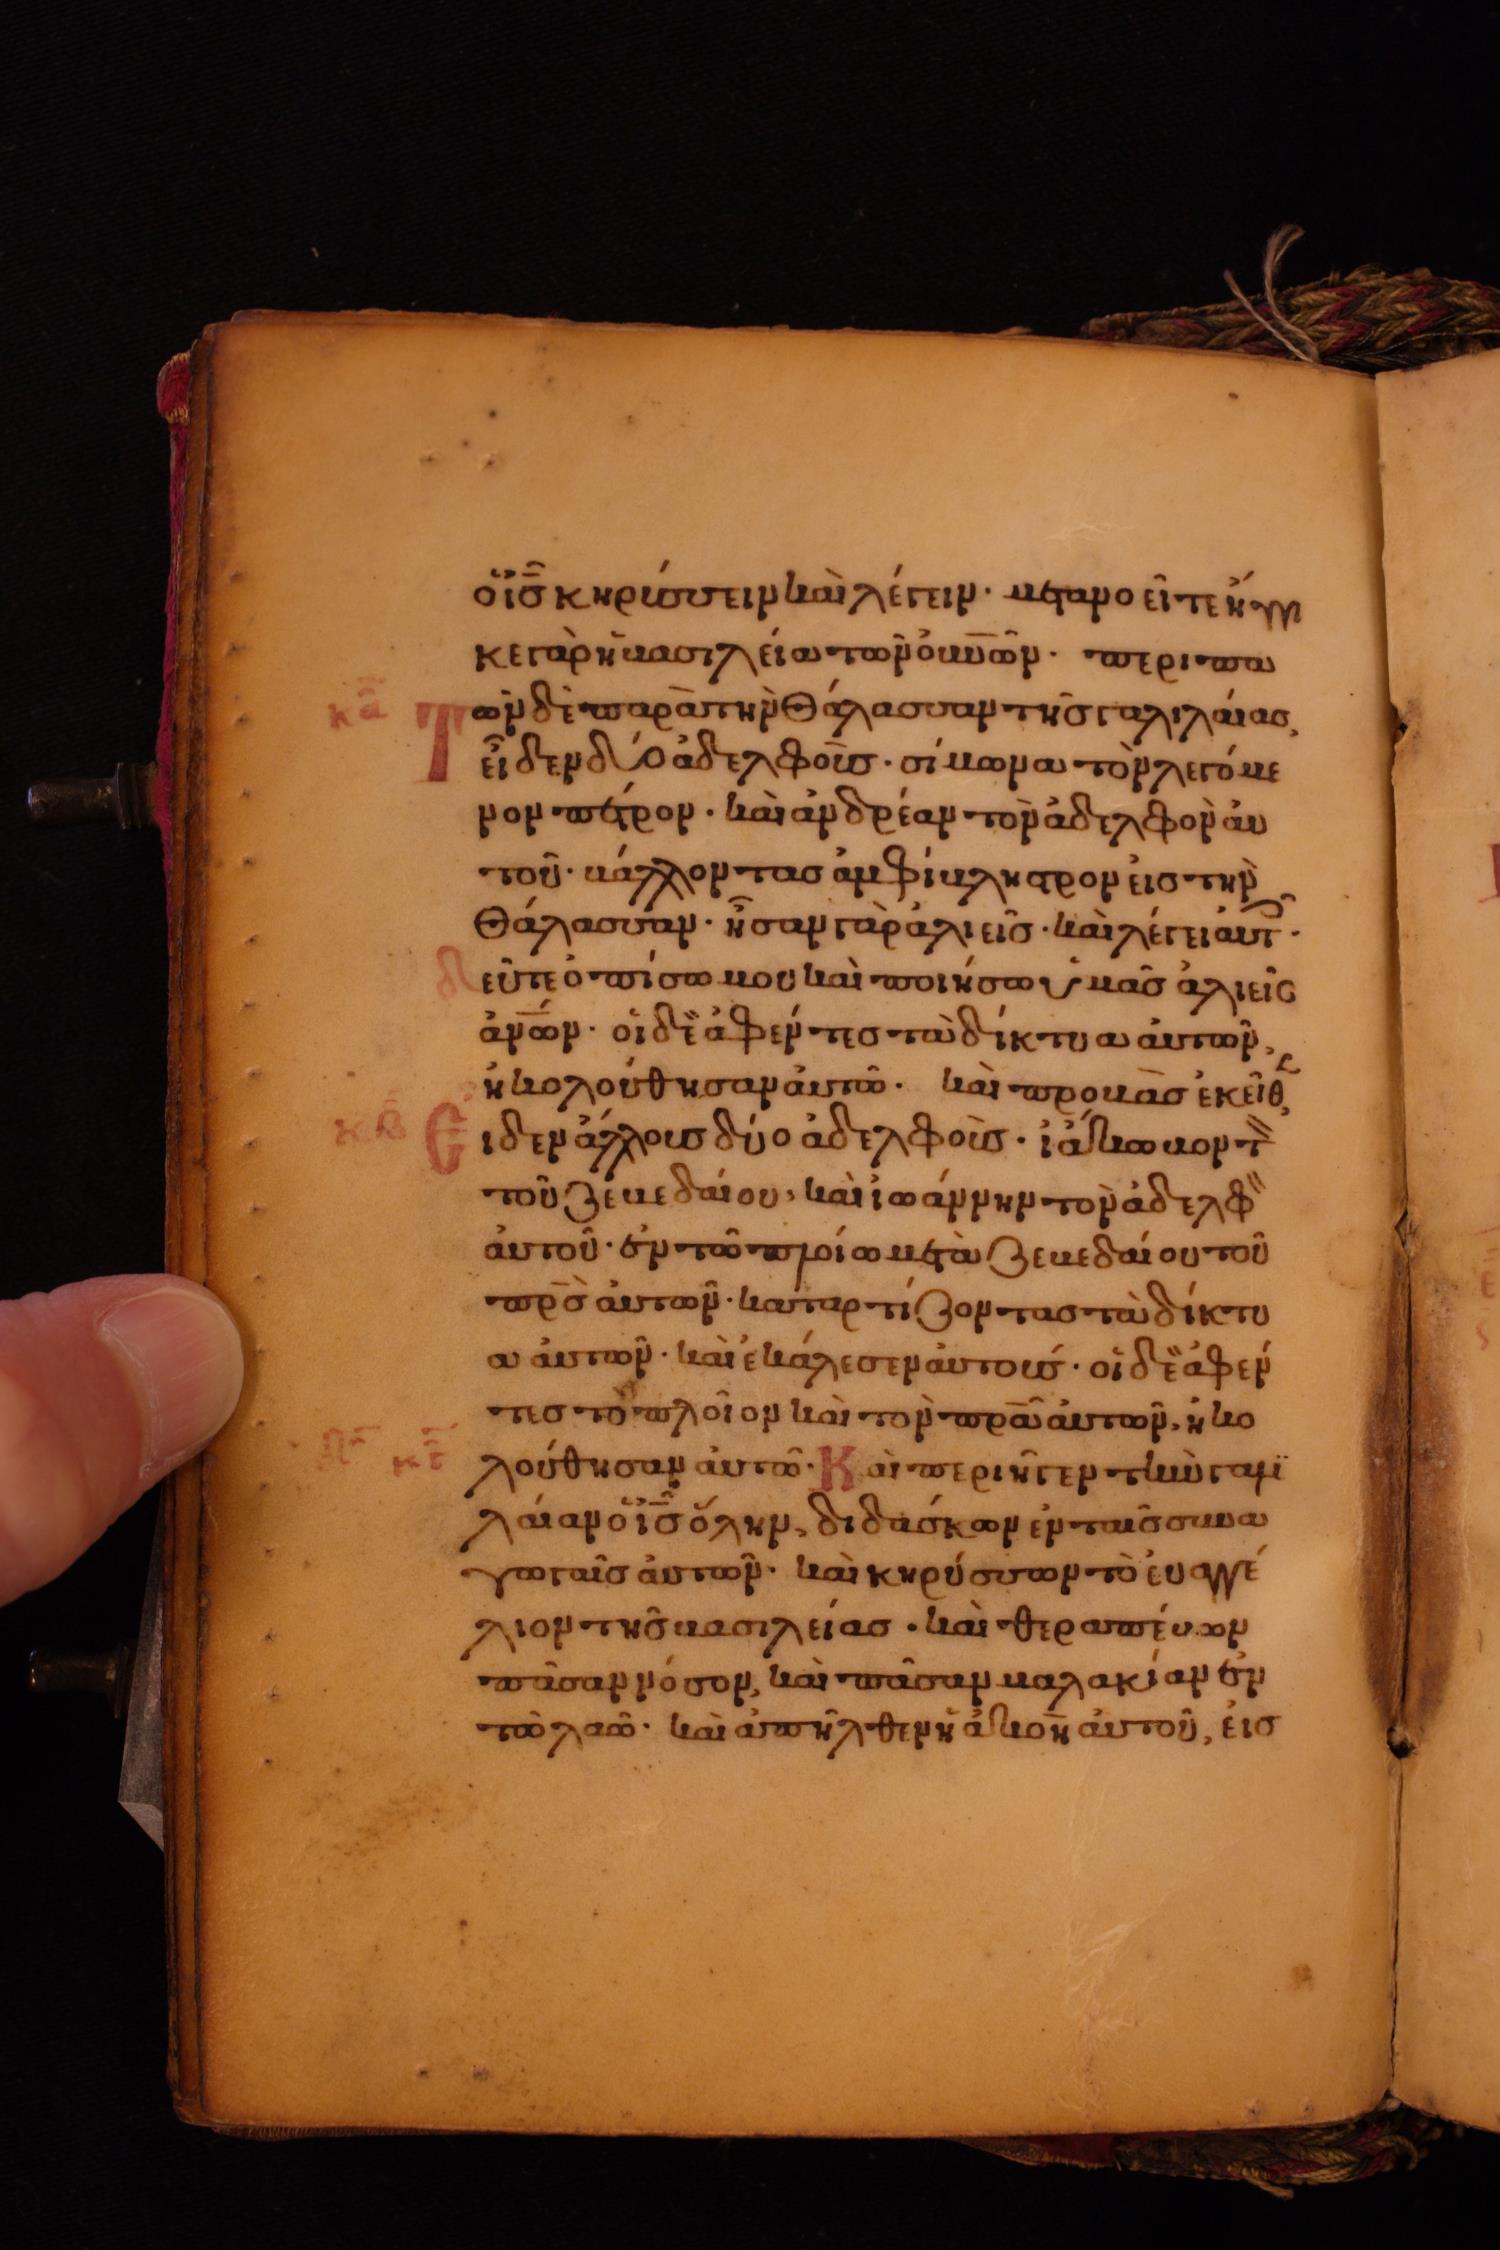 ὁ ἰ̅ς̅ κηρύσσειν καὶ λέγειν · μετανοεῖτε ἤγγι
κε γὰρ ἡ βασιλεία τῶν ὀυ̅ν̅ῶν · περιπα
κ̅α̅ Τῶν δὲ παρὰ τὴν θάλασσαν τῆς γαλιλαίας,
εἶδεν δύο ἀδελφοὺς · σίμωνα τὸν λεγόμε
νον πέτρον · καὶ ἀνδρέαν τὸν ἀδελφὸν ἀυ
τοῦ · βάλλοντας ἀμφίβληστρον ἐις τὴν
θάλασσάν · ἦσαν γὰρ ἁλιεῖς · καὶ λέγει ἀυτ ·
δεῦτε ὀπίσω μου καὶ ποιήσω ὑμᾶς ἁλιεῖς
ἀν̅ων · οἱ δὲ ἀφέντες τὰ δίκτυα ἀυτῶν,
ἠκολούθησαν ἀυτῶ · καὶ προβὰς ἐκεῖθε,
κ̅β̅ Ειδεν ἄλλους δύο ἀδελφοὺς · ἰάκωβον τ
τοῦ ζεβεδαίου, καὶ ἰωάννην τὸν ἀδελφ
ἀυτοῦ · ἐν τῶ πλοίω μετὰ ζεβεδαίου τοῦ
π̅ρ̅ς ἀυτῶν · καταρτίζοντας τὰ δίκτυ
α ἀυτῶν · καὶ ἐκάλεσεν ἀυτούς · οἱ δὲ ἀφέν
τες τὸ πλοῖον καὶ τὸν π̅ρ̅α̅ ἀυτῶν, ἠκο
κ̅γ̅ λούθησαν ἀυτῶ · Καὶ περιῆγεν τὴν γαλι
λαίαν ὁ ἰ̅ς̅ ὅλην, διδάσκων ἐν ταῖς συνα
γωγαῖς ἀυτῶν · καὶ κηρύσσων τὸ ἐυαγγέ
λιον τῆς βασιλείας · καὶ θεραπεύων
πᾶσαν νόσον, καὶ πᾶσαν μαλακίαν ἐν
τῶ λαῶ · καὶ ἀπῆλθεν ἡ ἀκοὴ ἀυτοῦ, ἐις